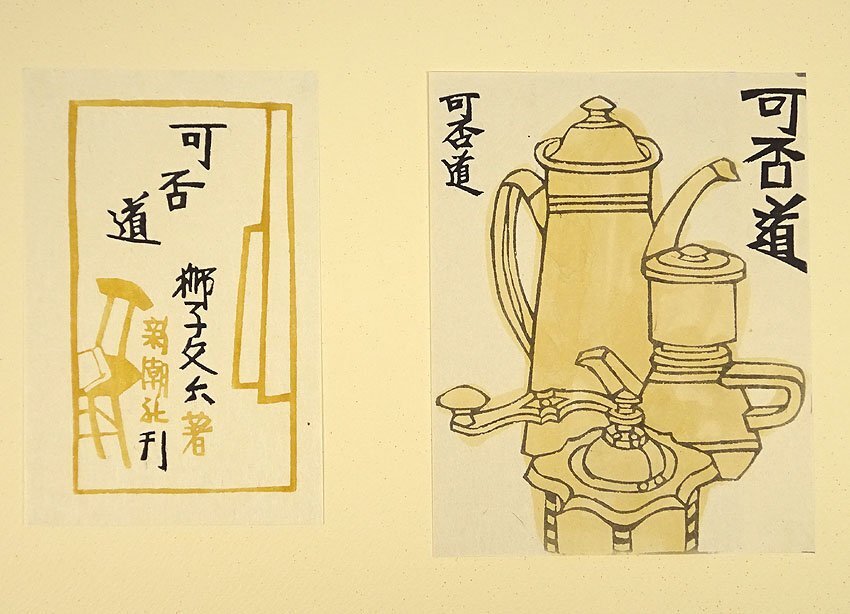 可否道
獅子文六著
新潮社刊
可否道
可否道